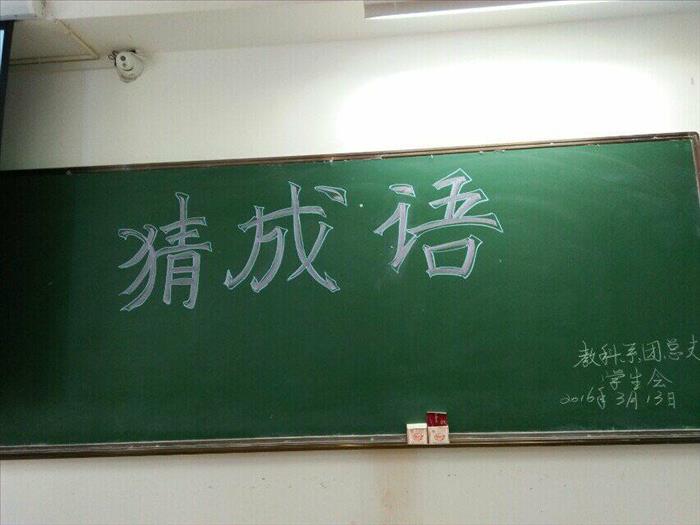 猜成语
教科系团总支
学生会
2016年3月13日